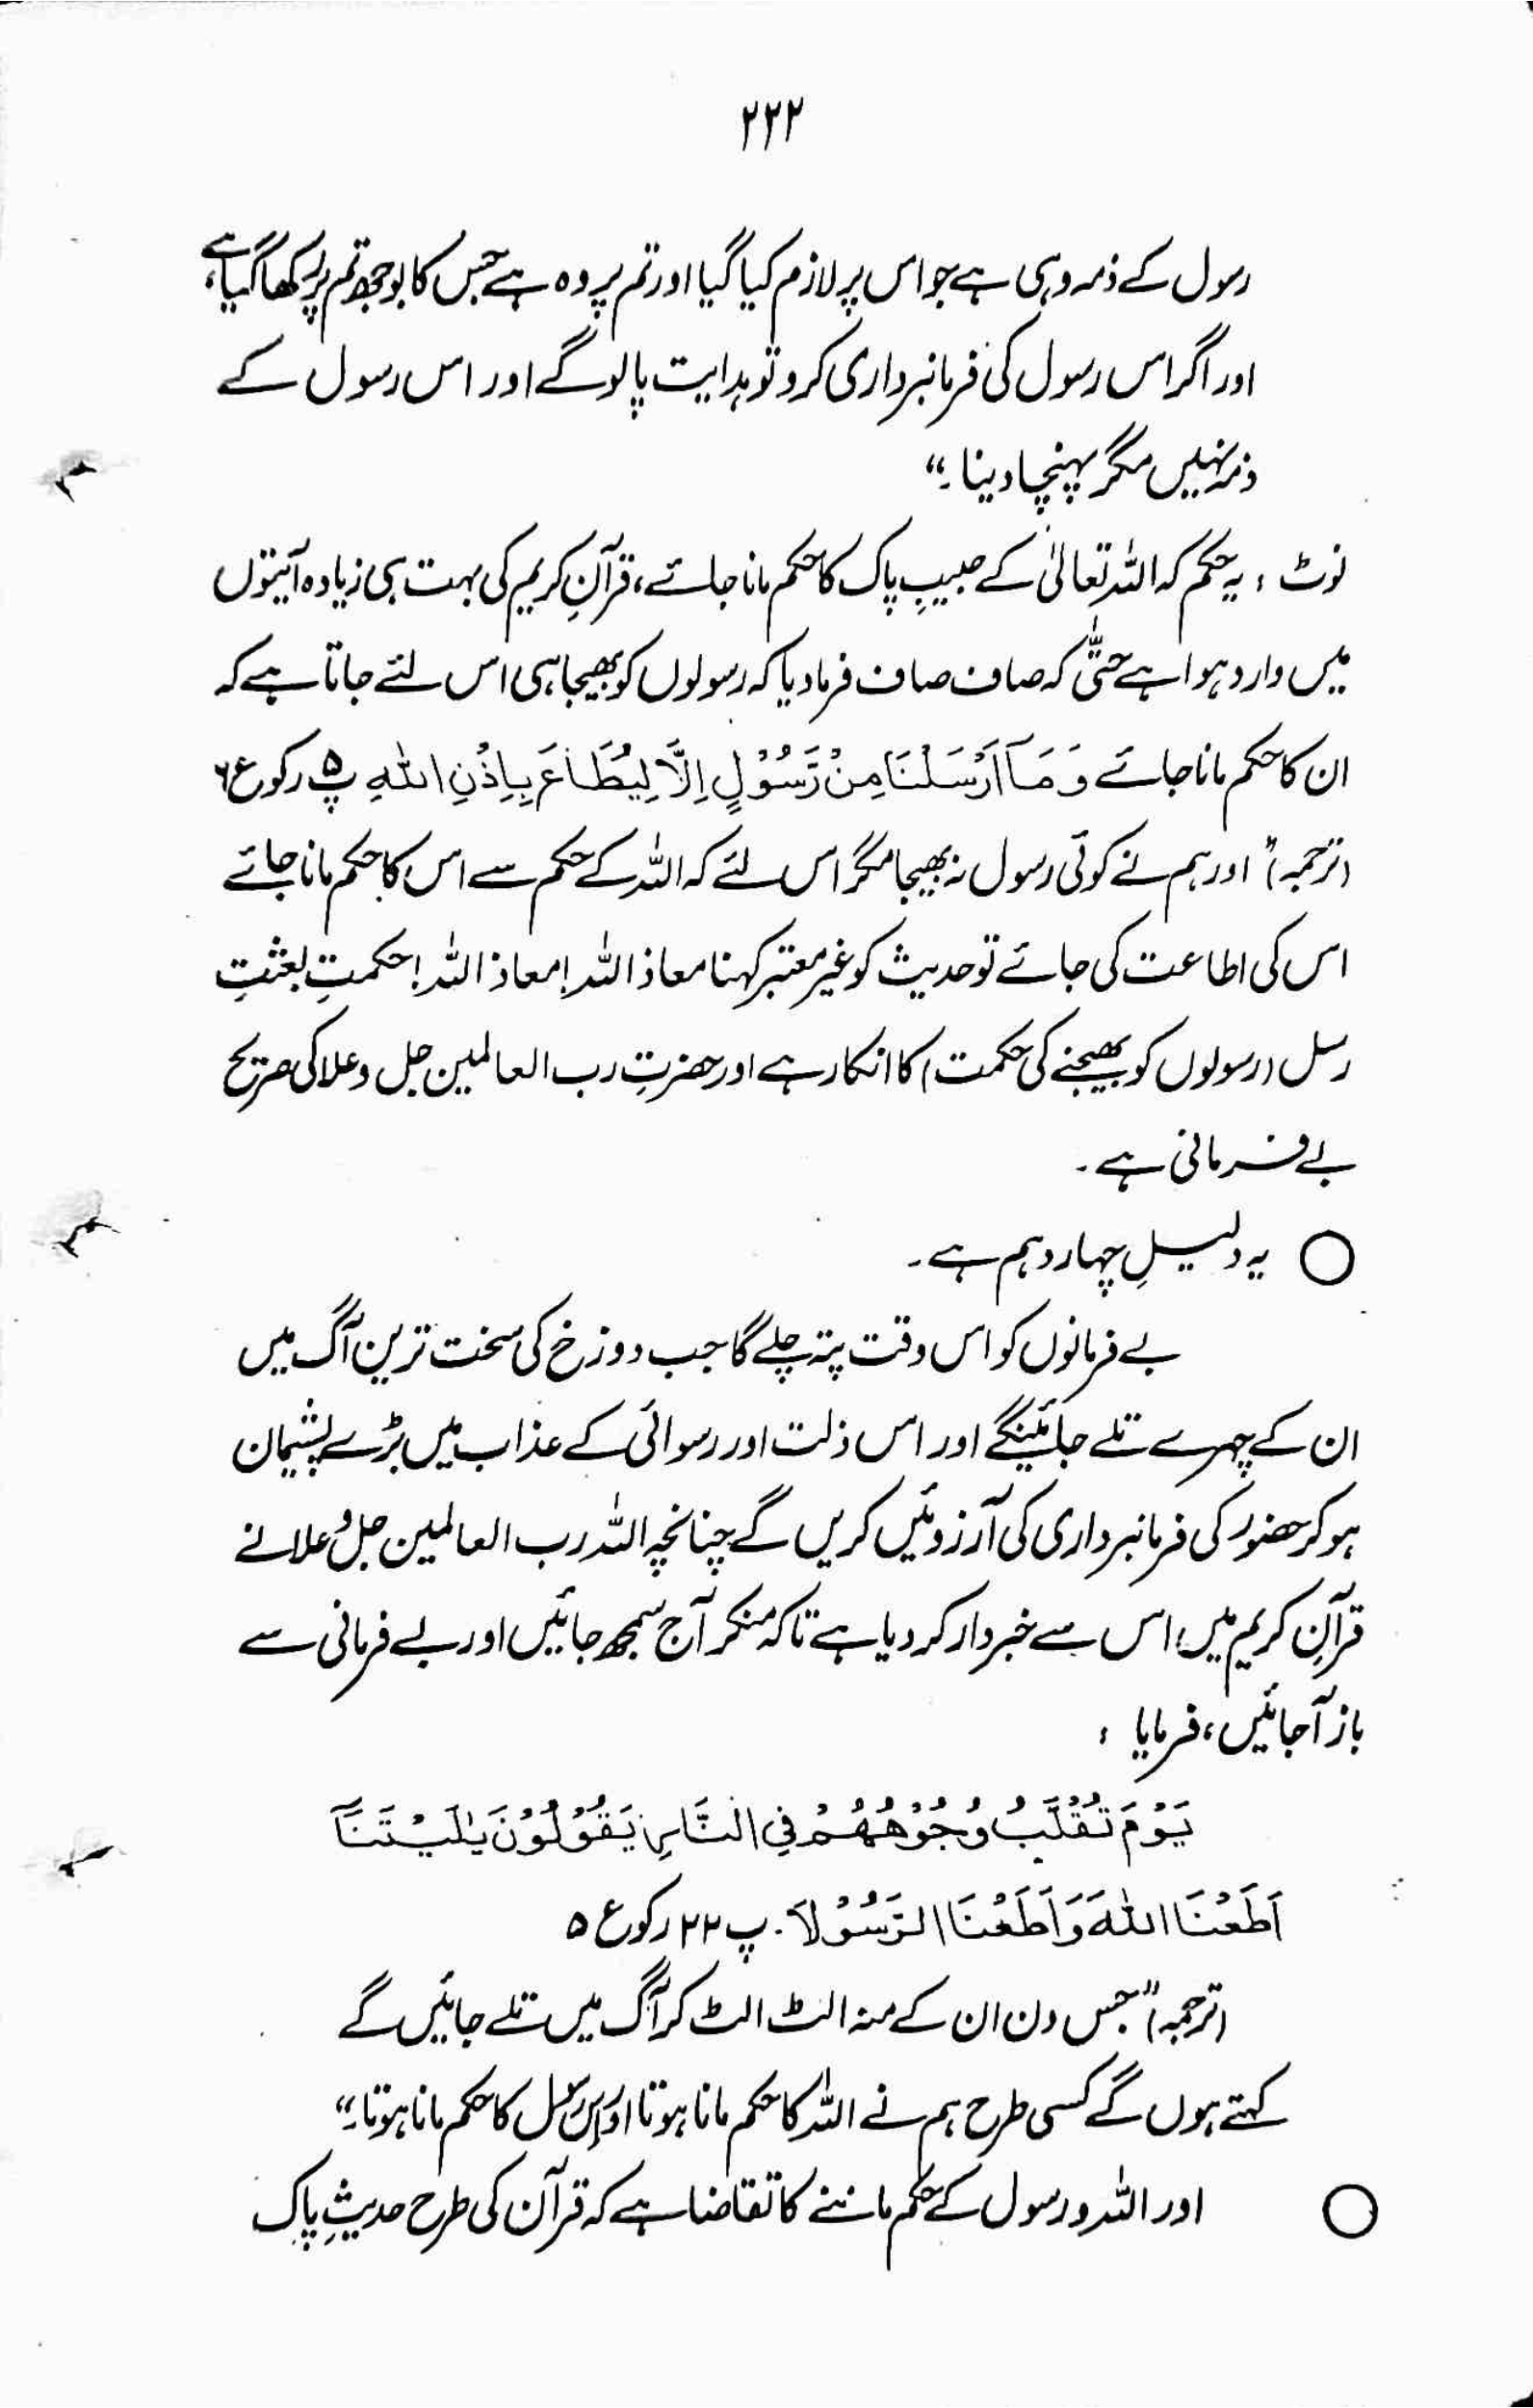 ۲۲۲
رسول کے ذمہ وہی ہے جو اس پر لازم کیا گیا اور تم پر وہ ہے جس کا بوجھ تم پر رکھا گیا ہے،
اور اگر اس رسول کی فرمانبرداری کرو تو ہدایت پا لو گے اور اس رسول کے
ذمہ نہیں مگر پہنچا دینا۔“
نوٹ : یہ حکم کہ اللہ تعالیٰ کے حبیبِ پاک کا حکم مانا جائے، قرآنِ کریم کی بہت ہی زیادہ آیتوں
میں وارد ہوا ہے حتّٰی کہ صاف صاف فرما دیا کہ رسولوں کو بھیجا ہی اس لئے جاتا ہے کہ
ان کا حکم مانا جائے وَمَآ اَرْسَلْنَا مِنْ رَّسُوْلٍ اِلَّا لِیُطَاعَ بِاِذْنِ اللهِ پ ۵ رکوع ۶
(ترجمہ) ”اور ہم نے کوئی رسول نہ بھیجا مگر اس لئے کہ اللہ کے حکم سے اس کا حکم مانا جائے
اس کی اطاعت کی جائے تو حدیث کو غیر معتبر کہنا معاذ اللہ! معاذ اللہ! حکمتِ بعثتِ
رسل (رسولوں کو بھیجنے کی حکمت) کا انکار ہے اور حضرتِ رب العالمین جل وعلا کی صریح
بے فرمانی ہے۔
○ یہ دلیلِ چہاردہم ہے۔
بے فرمانوں کو اس وقت پتہ چلے گا جب دوزخ کی سخت ترین آگ میں
ان کے چہرے تلے جائینگے اور اس ذلت اور رسوائی کے عذاب میں بڑے پشیمان
ہو کر حضور کی فرمانبرداری کی آرزوئیں کریں گے چنانچہ اللہ رب العالمین جل وعلا نے
قرآنِ کریم میں اس سے خبردار کر دیا ہے تاکہ منکر آج سمجھ جائیں اور بے فرمانی سے
باز آ جائیں، فرمایا :
یَوْمَ تُقَلَّبُ وُجُوْهُهُمْ فِی النَّارِ یَقُوْلُوْنَ یٰلَیْتَنَآ
اَطَعْنَا اللهَ وَاَطَعْنَا الرَّسُوْلَا۔ پ ۲۲ رکوع ۵
(ترجمہ) ”جس دن ان کے منہ الٹ الٹ کر آگ میں تلے جائیں گے
کہتے ہوں گے کسی طرح ہم نے اللہ کا حکم مانا ہوتا اور اس رسول کا حکم مانا ہوتا۔“
○ اور اللہ و رسول کے حکم ماننے کا تقاضا ہے کہ قرآن کی طرح حدیثِ پاک